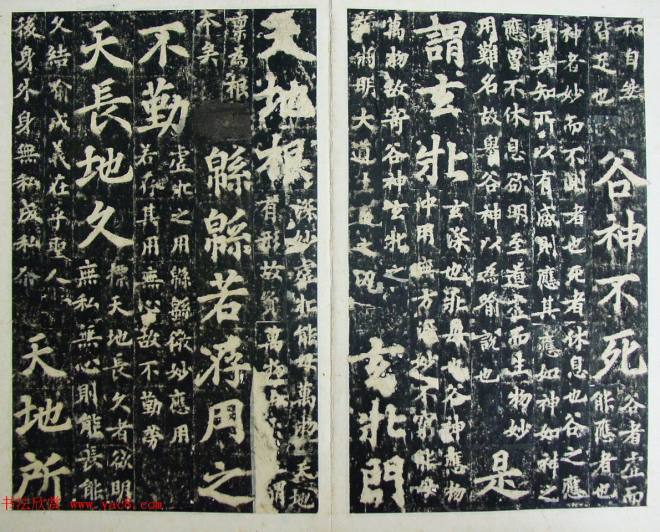 和自然
皆是也
谷神不死
谷者虛而
能應者也
神者妙而不測者也死者休息也谷之應
聲莫知所以有感則應其應如神如神之
應曾不休息欲明至道虛而生物妙
用難名故舉谷神以為喻說也
是
謂玄牝
玄深也牝母也谷神應物
沖用無方深妙不窮能母
萬物故寄谷神玄牝之
將明大道生
玄牝門
天地根
深妙虛牝能母萬物
天地
有形故
萬物
謂
稟為根
本矣
緜緜若存用之
不勤
虛牝之用緜緜微妙應用
若存其用無心故不勤勞
天長地久
標天地長久者欲明
無私無心則能長能
久結喻成義在乎聖人
後身外身無私成私尒
天地所
书法欣赏 www.yac8.com